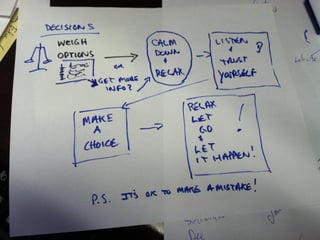 DECISIONS
WEIGH
OPTIONS
OR
GET MORE
INFO?
CALM
DOWN
&
RELAX
LISTEN
&
TRUST
YOURSELF
?
MAKE
A
CHOICE
RELAX
LET
GO
&
LET
IT HAPPEN!
!
P.S. IT'S OK TO MAKE A MISTAKE!